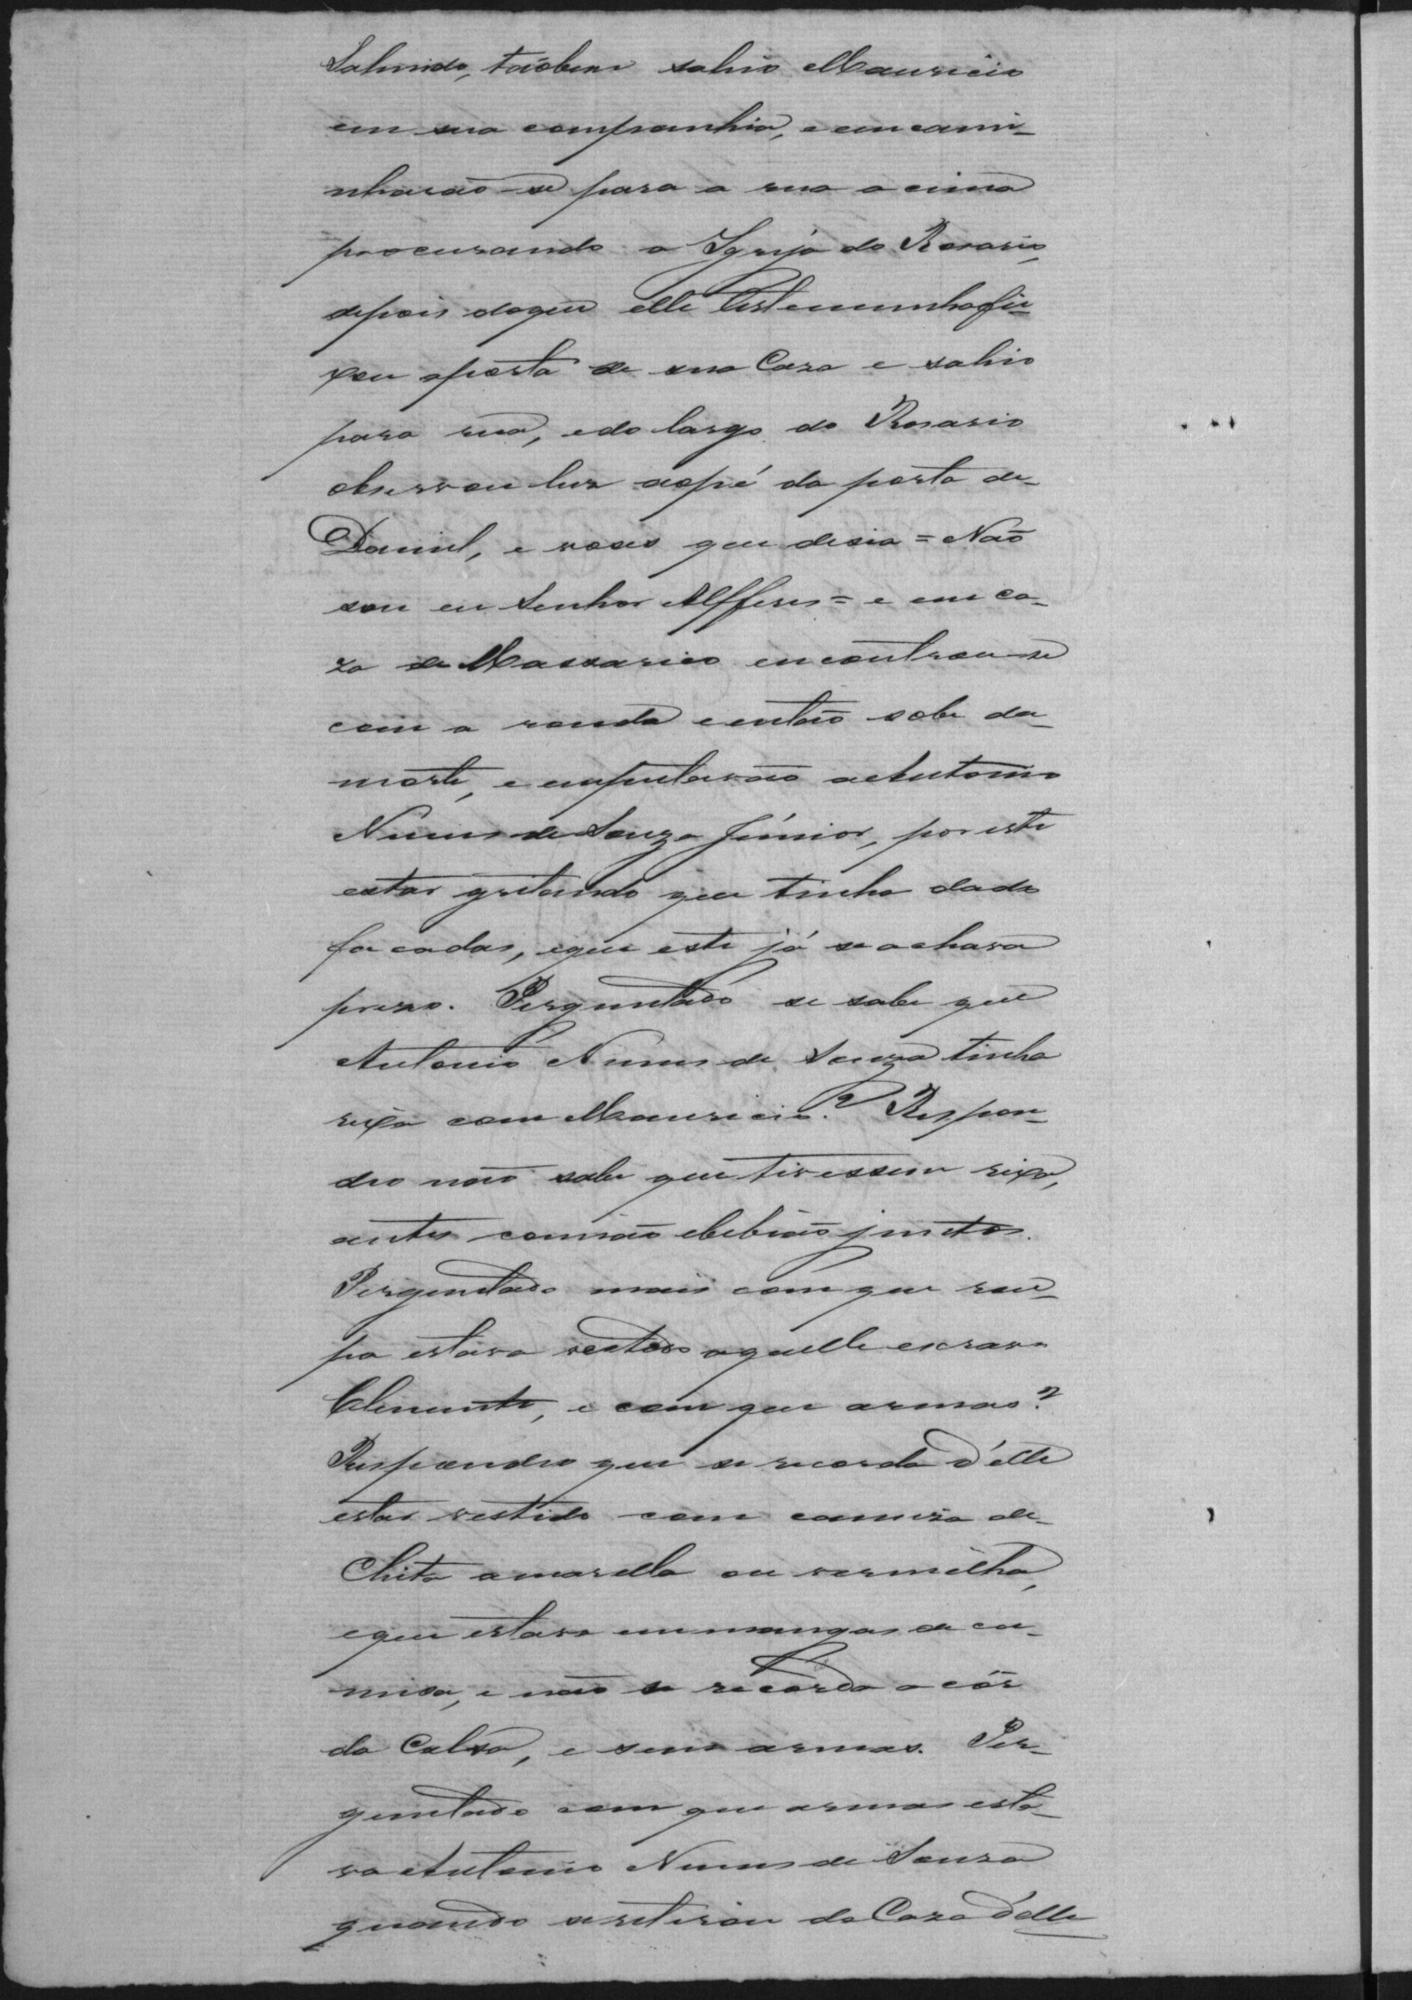 Sahindo, tãobem sahio Mauricio
em sua companhia, e encami-
nharaõ-se para a rua acima
procurando a Igreja do Rosario,
depois doque elle testemunha fei-
xou aporta de sua Caza e sahio
para rua, e do largo do Rosario
observou luz aopé da porta de-
Daniel, e vozes que desia = Naõ
sou eu Senhor Alfferes = e em ca-
za de Massarico encontrou-se
com a ronda e entaõ sobe da-
morte, e emputavaõ a Antonio
Nunes de Souza Júnior, por este
estar gritando que tinha dado
facadas, eque este já se achava
prezo. Perguntado se sabe que
Antonio Nunes de Souza tinha
rixa com Mauricio? Respon-
deo naõ sabe que tivessem rixa,
antes comiaõ ebebiaõ juntos.
Perguntado mais com que rou-
pa estava vestido aquelle escravo
Clemente, e com que armas?
Respondeo que se recorda d'elle
estar vestido com camiza de-
Chita amarella ou vermelha,
eque estava em mangas de ca-
misa, e naõ se recorda a côr
da Calsa, e sem armas. Per-
guntado com que armas esta-
va Antonio Nunes de Souza
quando se retirou da Caza d'elle